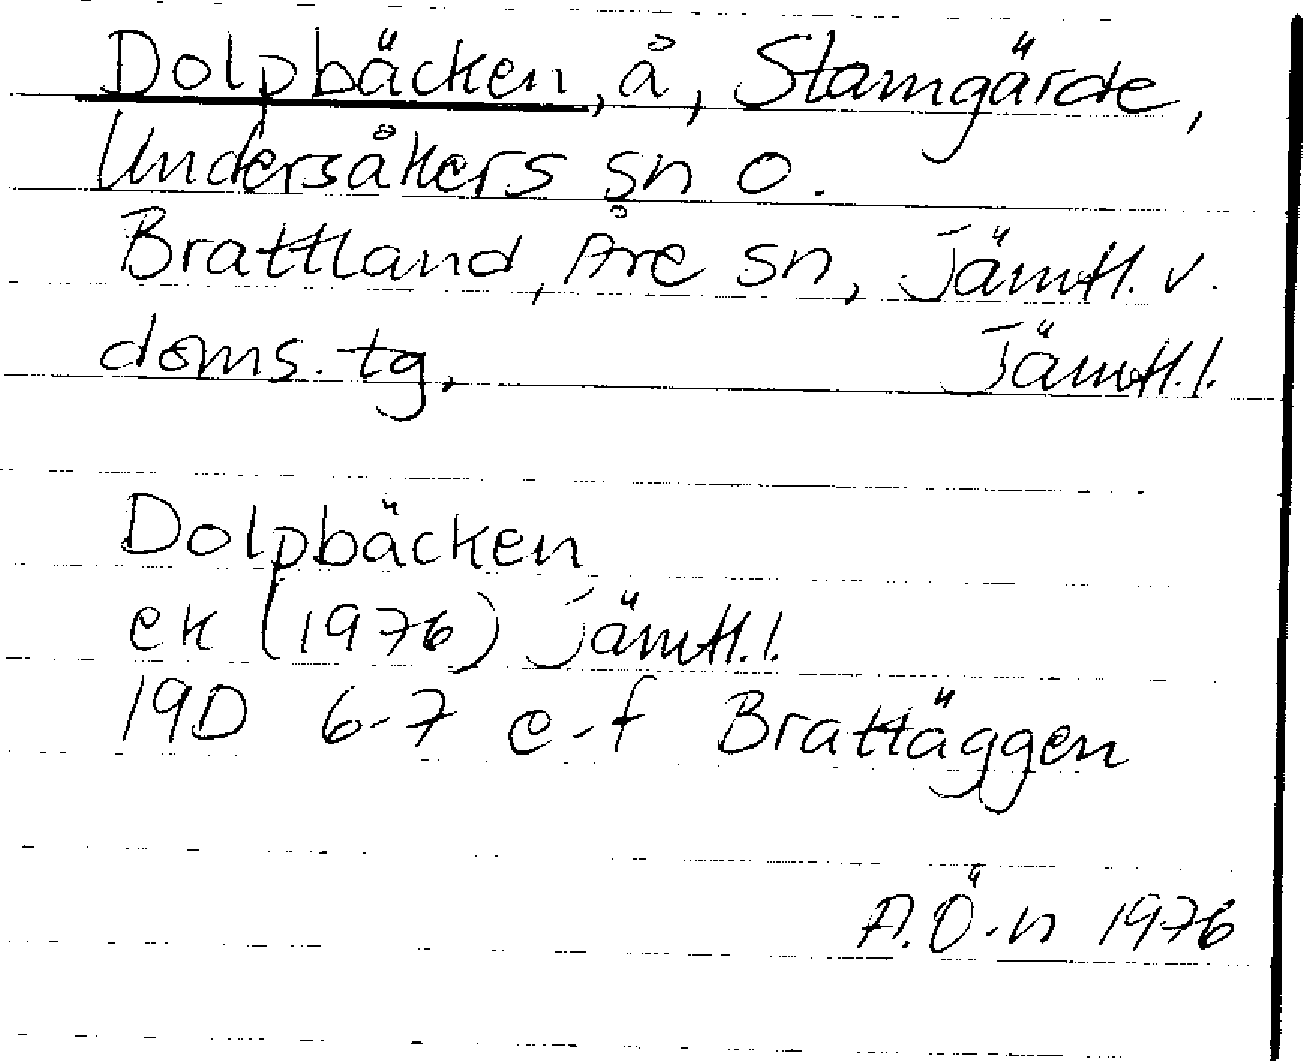 Dolpbäcken, å, Stamgärde,
Undersåkers sn o.
Brattland, Åre sn, Jämtl. v.
doms. tg, Jämtl. l.
Dolpbäcken
ek (1976) Jämtl. l.
19D 6-7 e-f Brattäggen
A.Ö-n 1976